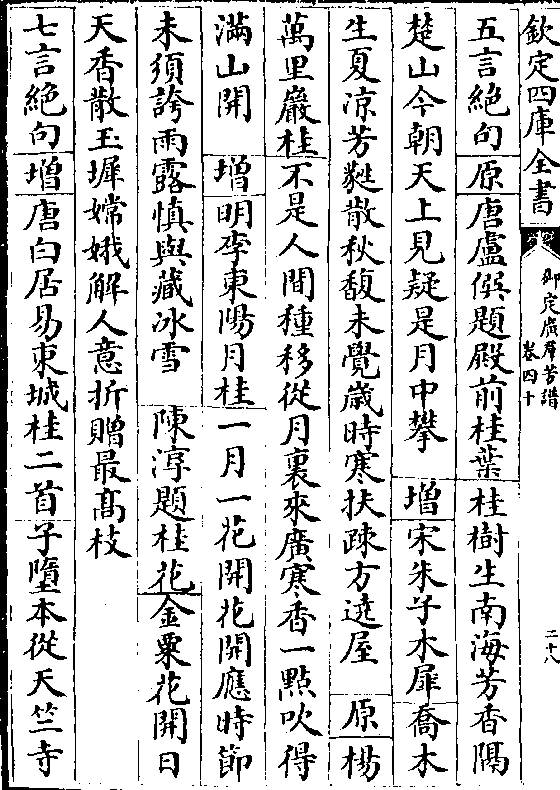 欽定四庫全書
御定廣羣芳譜
卷四十
二十八
五言絶句原唐盧僎題殿前桂葉桂樹生南海芳香隔
楚山今朝天上見疑是月中攀增宋朱子木犀喬木
生夏凉芳蕤散秋馥未覺歲時寒扶疎方遶屋原楊
萬里巖桂不是人間種移從月裏來廣寒香一點吹得
滿山開增明李東陽月桂一月一花開花開應時節
未須誇雨露慎與藏冰雪陳淳題桂花金粟花開日
天香散玉墀嫦娥解人意折贈最高枝
七言絶句增唐白居易東城桂二首子墮本從天竺寺